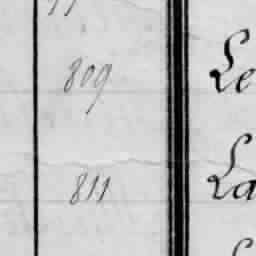 809 Le
811 La